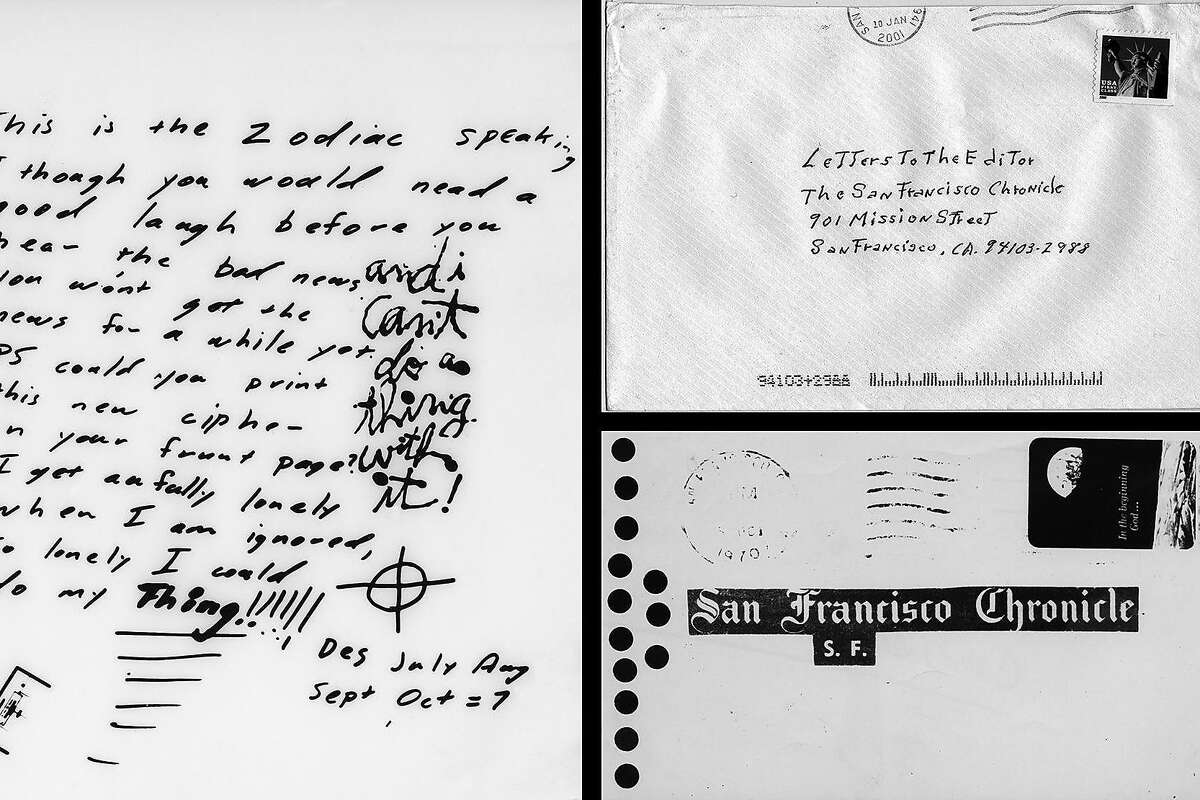 This is the Zodiac speaking
I though you would nead a
good laugh before you
hear the bad news
You won't get the
news for a while yet.
PS could you print
this new cipher
on your frunt page?
I get awfully lonely
when I am ignored,
So lonely I could
do my Thing!!!!!!
and i
can't
do a
thing
with
it!
Des July Aug
Sept Oct = 7
SAN 941
10 JAN
2001
USA
FIRST
CLASS
Letters To The Editor
The San Francisco Chronicle
901 Mission Street
San Francisco, CA. 94103-2988
94103+2988
1970
In the beginning
God...
San Francisco Chronicle
S. F.